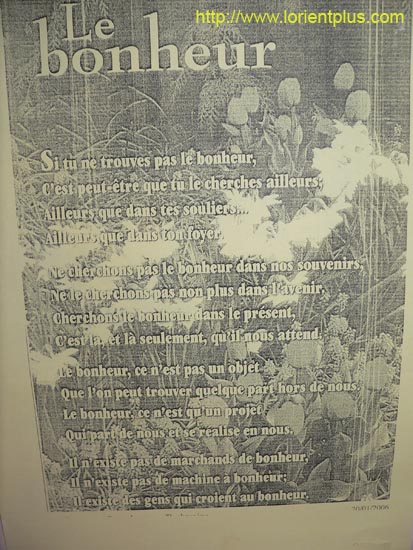 http://www.lorientplus.com
Le
bonheur
Si tu ne trouves pas le bonheur,
C'est peut-être que tu le cherches ailleurs,
Ailleurs que dans tes souliers...
Ailleurs que dans ton foyer.
Ne cherchons pas le bonheur dans nos souvenirs,
Ne le cherchons pas non plus dans l'avenir,
Cherchons le bonheur dans le présent,
C'est là, et là seulement, qu'il nous attend.
Le bonheur, ce n'est pas un objet
Que l'on peut trouver quelque part hors de nous.
Le bonheur, ce n'est qu'un projet
Qui part de nous et se réalise en nous.
Il n'existe pas de marchands de bonheur,
Il n'existe pas de machine à bonheur;
Il existe des gens qui croient au bonheur.
20/01/2006